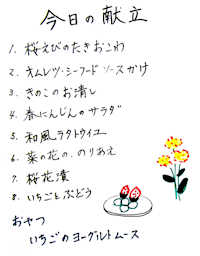 今日の献立
1. 桜えびのたきおこわ
2. オムレツ・シーフードソースかけ
3. きのこのお清し
4. 春にんじんのサラダ
5. 和風ラタトウイユ
6. 菜の花の、のりあえ
7. 桜花漬
8. いちごとぶどう
おやつ
いちごのヨーグルトムース